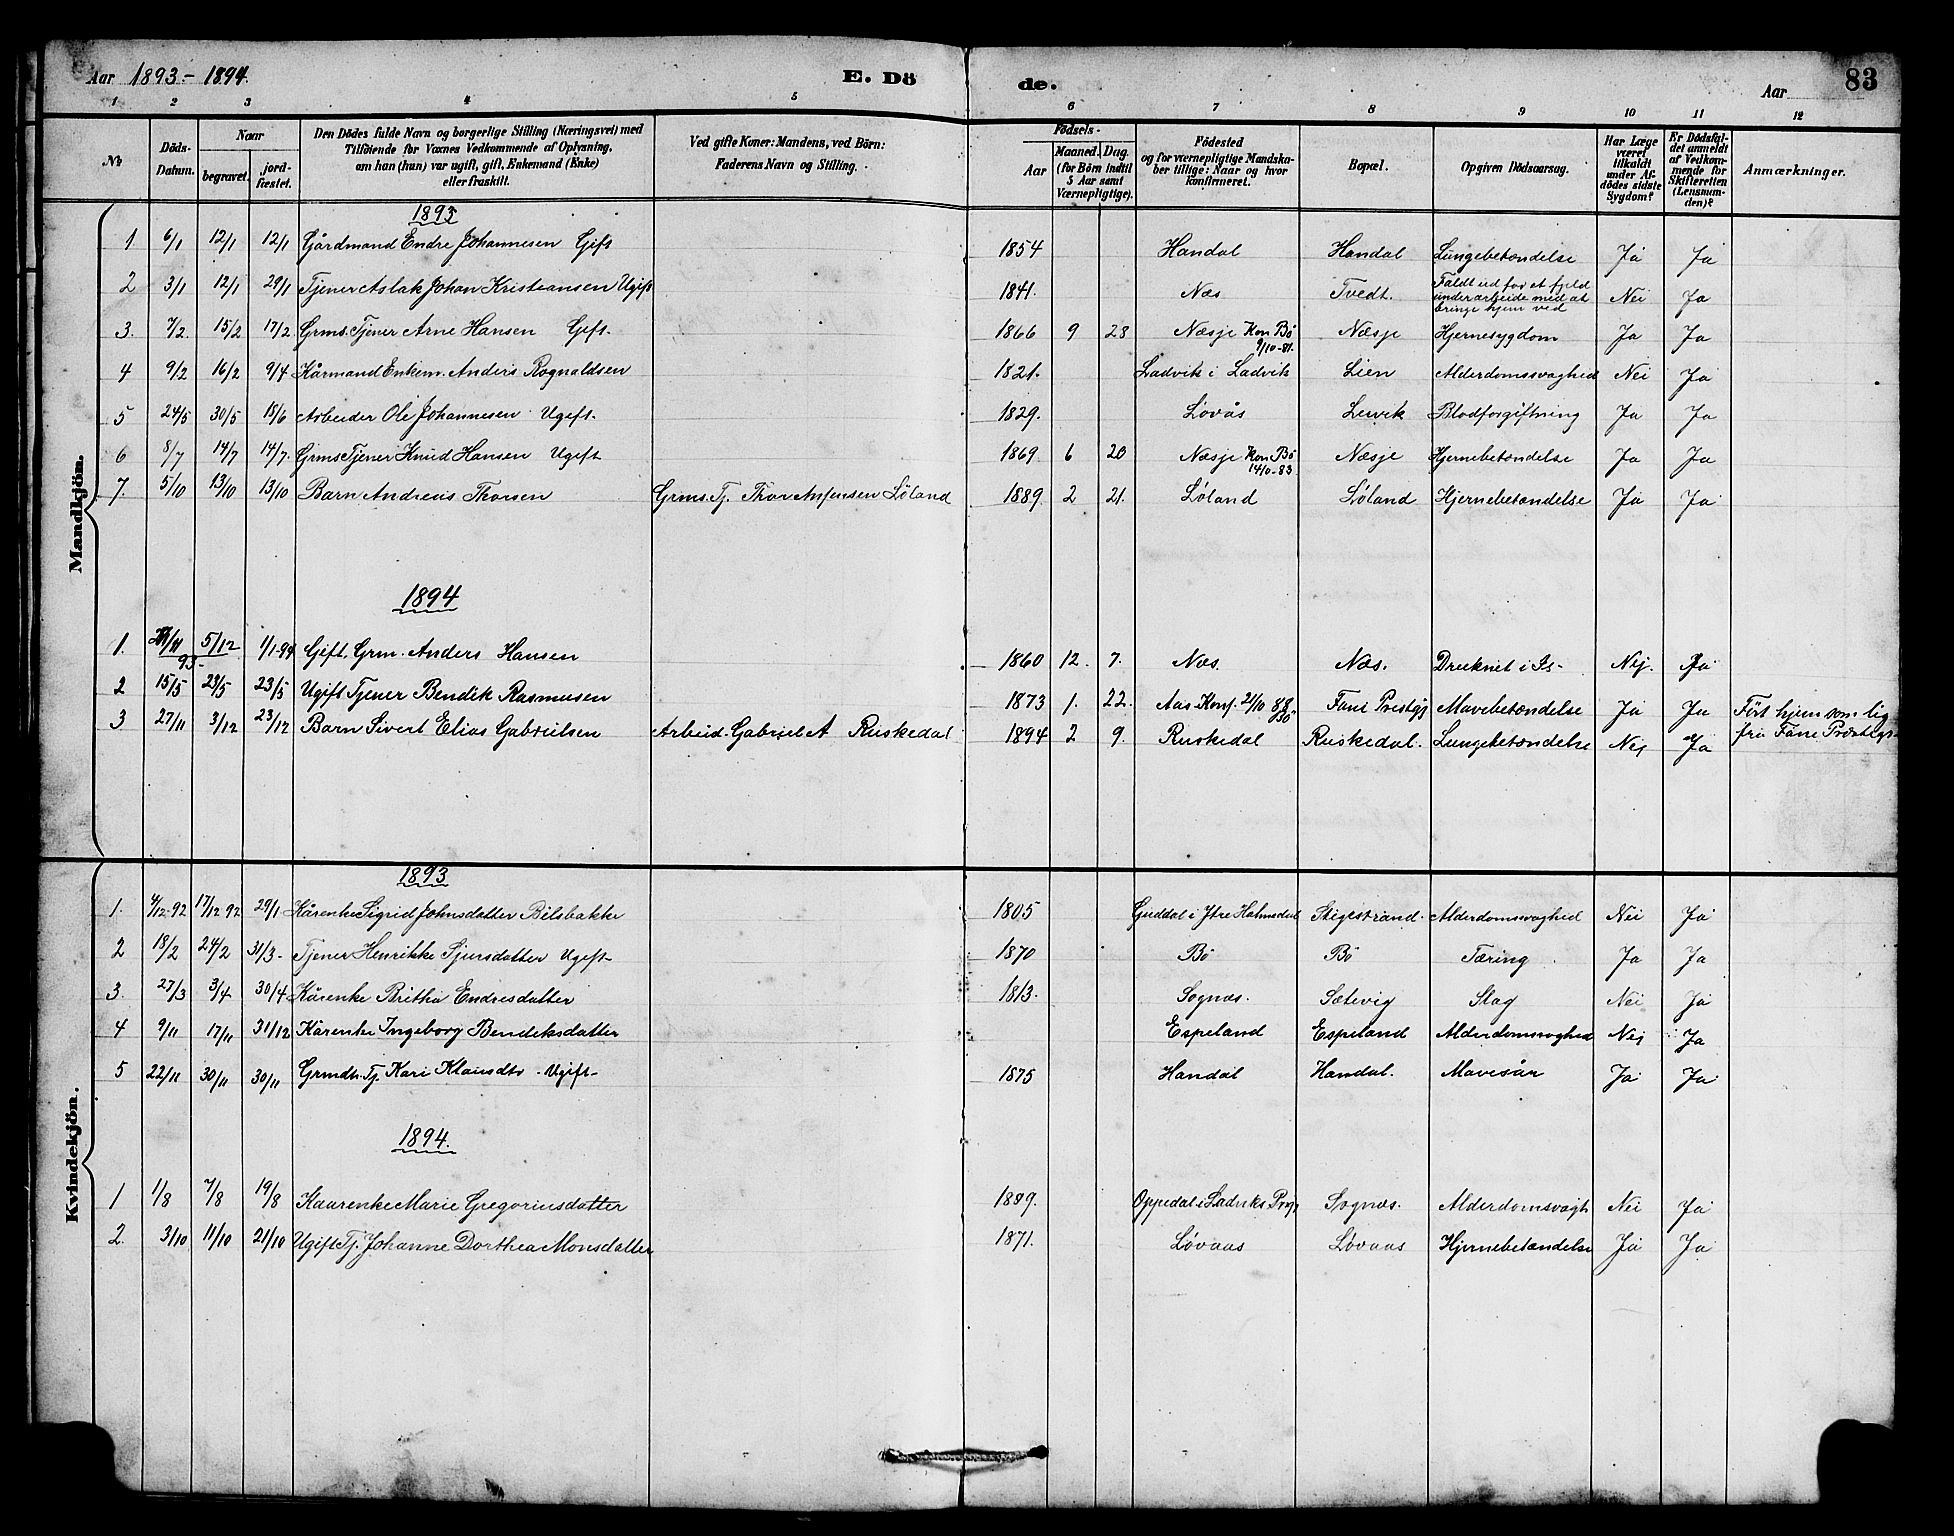 Aar 1893 - 1894. E. Dö de. Aar 83
1 2 3 4 5 6 7 8 9 10 11 12
No
Döds-Datum.
Naar begravet. jordfæstet.
Den Dödes fulde Navn og borgerlige Stilling (Næringsvei) med
Tilföiende for Voxnes Vedkommende af Oplysning,
om han (hun) var ugift, gift, Enkemand (Enke)
eller fraskilt.
Ved gifte Koner: Mandens, ved Börn:
Faderens Navn og Stilling.
Födsels-
Aar Maaned. Dag.
(for Börn indtil 5 Aar samt Værnepligtige).
Födested
og for værnepligtige Mandskaber tillige: Naar og hvor konfirmeret.
Bopæl.
Opgiven Dödsaarsag.
Har Læge været tilkaldt under Afdödes sidste Sygdom?
Er Dödsfaldet anmeldt af Vedkommende for Skifteretten (Lensmanden)?
Anmærkninger.
Mandkjön.
1893
1 6/1 12/1 12/1 Gårdmand Endre Johannesen Gift 1854 Handal Handal Lungebetændelse Ja Ja
2 3/1 12/1 29/1 Tjener Aslak Johan Kristiansen Ugift 1841. Næs Tvedt. Faldt ud for et fjeld under arbeide med at bringe hjem ved Nei Ja
3. 7/2 15/2 17/2 Grms. Tjener Arne Hansen Gift. 1866 9 28 Næsje Kon Bö 9/10-81. Næsje Hjernesygdom Ja Ja
4 9/2 16/2 9/4 Kårmand Enkem. Anders Rognaldsen 1821. Ladvik i Ladvik Lien Alderdomssvaghed Nei Ja
5 24/5 30/5 18/6 Arbeider Ole Johannesen Ugift. 1829. Lovås Lervik Blodforgiftning Ja Ja
6 8/7 14/7 14/7. Grms Tjener Knud Hansen Ugift 1869 6 20 Næsje Kon Bö Næsje Hjernebetændelse Ja Ja
7. 5/10 13/10 13/10 Barn Andreas Thorsen Grms. Tj. Thor Løland 1889 2 21. Løland Løland Hjernebetændelse Ja Ja
1894
1. 93- 5/12 1/1-94 Gift. Grm. Anders Hansen 1860 12. 7. Næs Næs. Drucknet i Is- Nej. Ja
2 15/5 23/5 23/5 Ugift Tjener Bendik Rasmusen 1873 1. 22. Aas Konf. 21/10 88 Bö Fane Prestgj Mavebetændelse Ja Ja Fört hjem som lig fra Fane Præstegj
3 27/11 3/12 23/12 Barn Sivert Elias Gabrielsen Arbeid. Gabriel A Ruskedal 1894 2 9. Ruskedal Ruskedal. Lungebetændelse Nej Ja
Kvindekjön.
1893
1. 4/12-92 17/12 92 29/1 Kårenke Sigrid Johnsdatter Bilsbakke 1805 Guddal i Ytre Holmedal Stigestrand. Alderdomsvaghed Nei Ja
2 18/2 24/2 31/3- Tjener Henrikke Sjursdatter Ugift- 1870 Bö Bö Tæring Ja Ja
3. 27/3 3/4 30/4 Kårenke Britha Endresdatter 1813. Sognæs. Sætevig Slag Nei Ja
4 9/11 17/11 31/12 Kårenke Ingeborg Bendiksdatter Espeland Espeland Alderdomsvaghed Nej Ja
5 22/11 30/11 30/11 Grmdt. Tj. Kari Klausdtr. Ugift- 1875 Handal Handal. Mavesår Ja Ja
1894.
1 1/8 7/8 19/8 Kaarenke Marie Gregoriusdatter Oppedal i Ladviks Prgj Sognæs. Alderdomsvagh Nei Ja
2. 3/10 11/10 21/10 Ugift Tj. Johanne Dorthea Monsdatter 1871. Løvaas Løvaas Hjernebetændelse Ja Ja